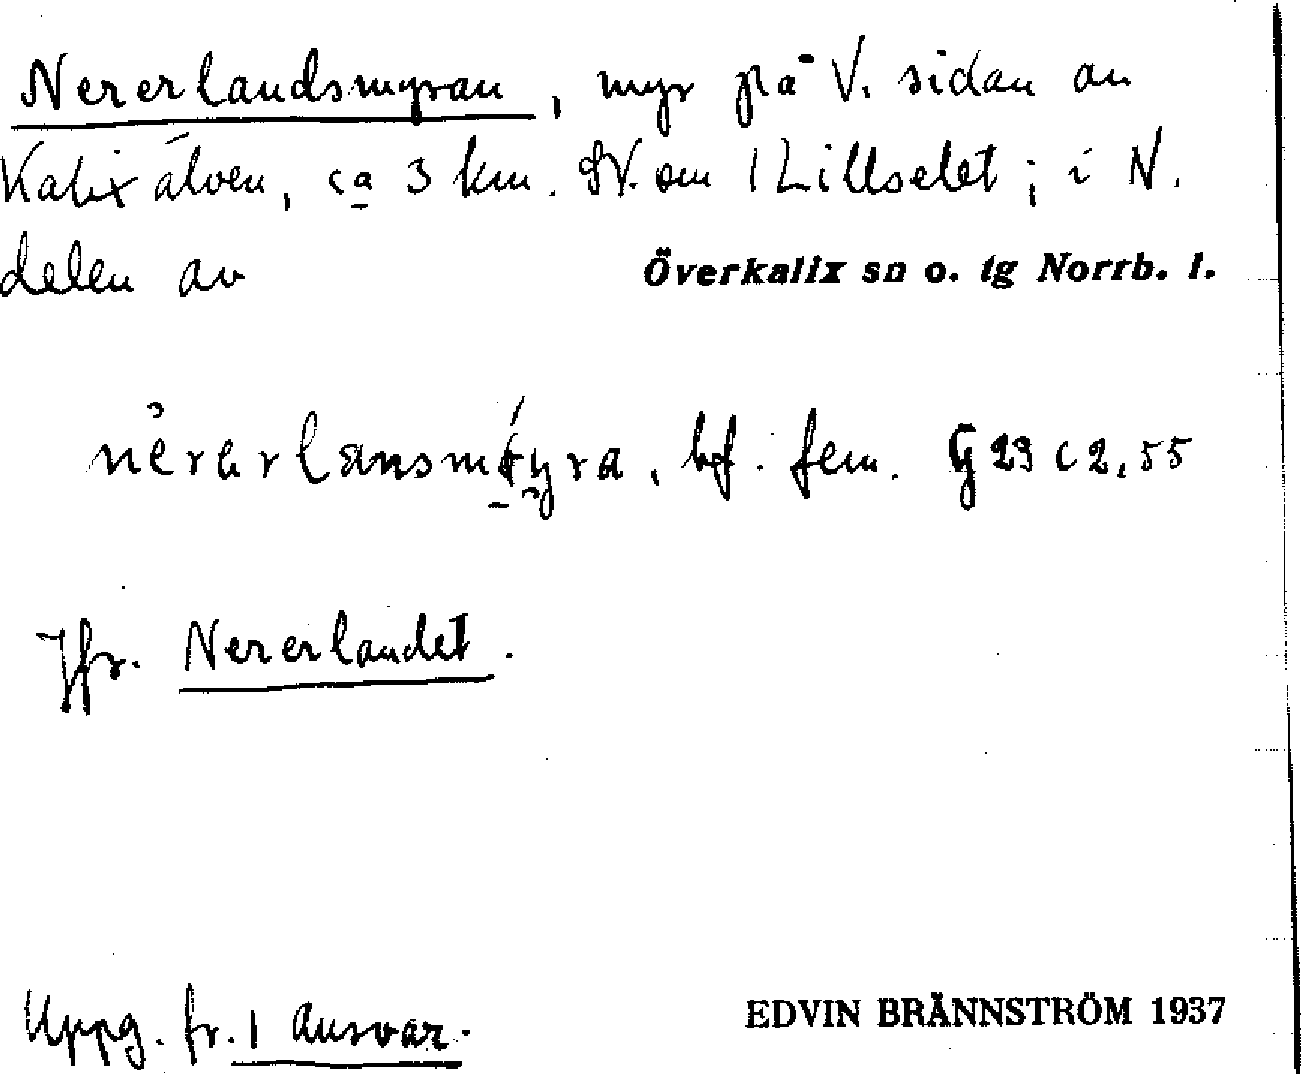 Nererlandsmyran, myr på V. sidan av
Kalixälven, ca 3 km. SV. om 1 Lillselet; i N.
delen av Överkalix sn o. tg Norrb. l.
bf. fem. G 29 c 2, 55
Jfr. Nererlandet.
Uppg. fr. 1 Ansvar.
EDVIN BRÄNNSTRÖM 1937